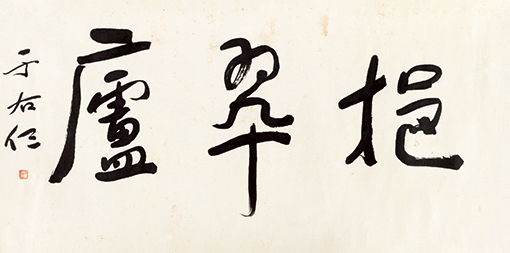 挹翠廬
于右任